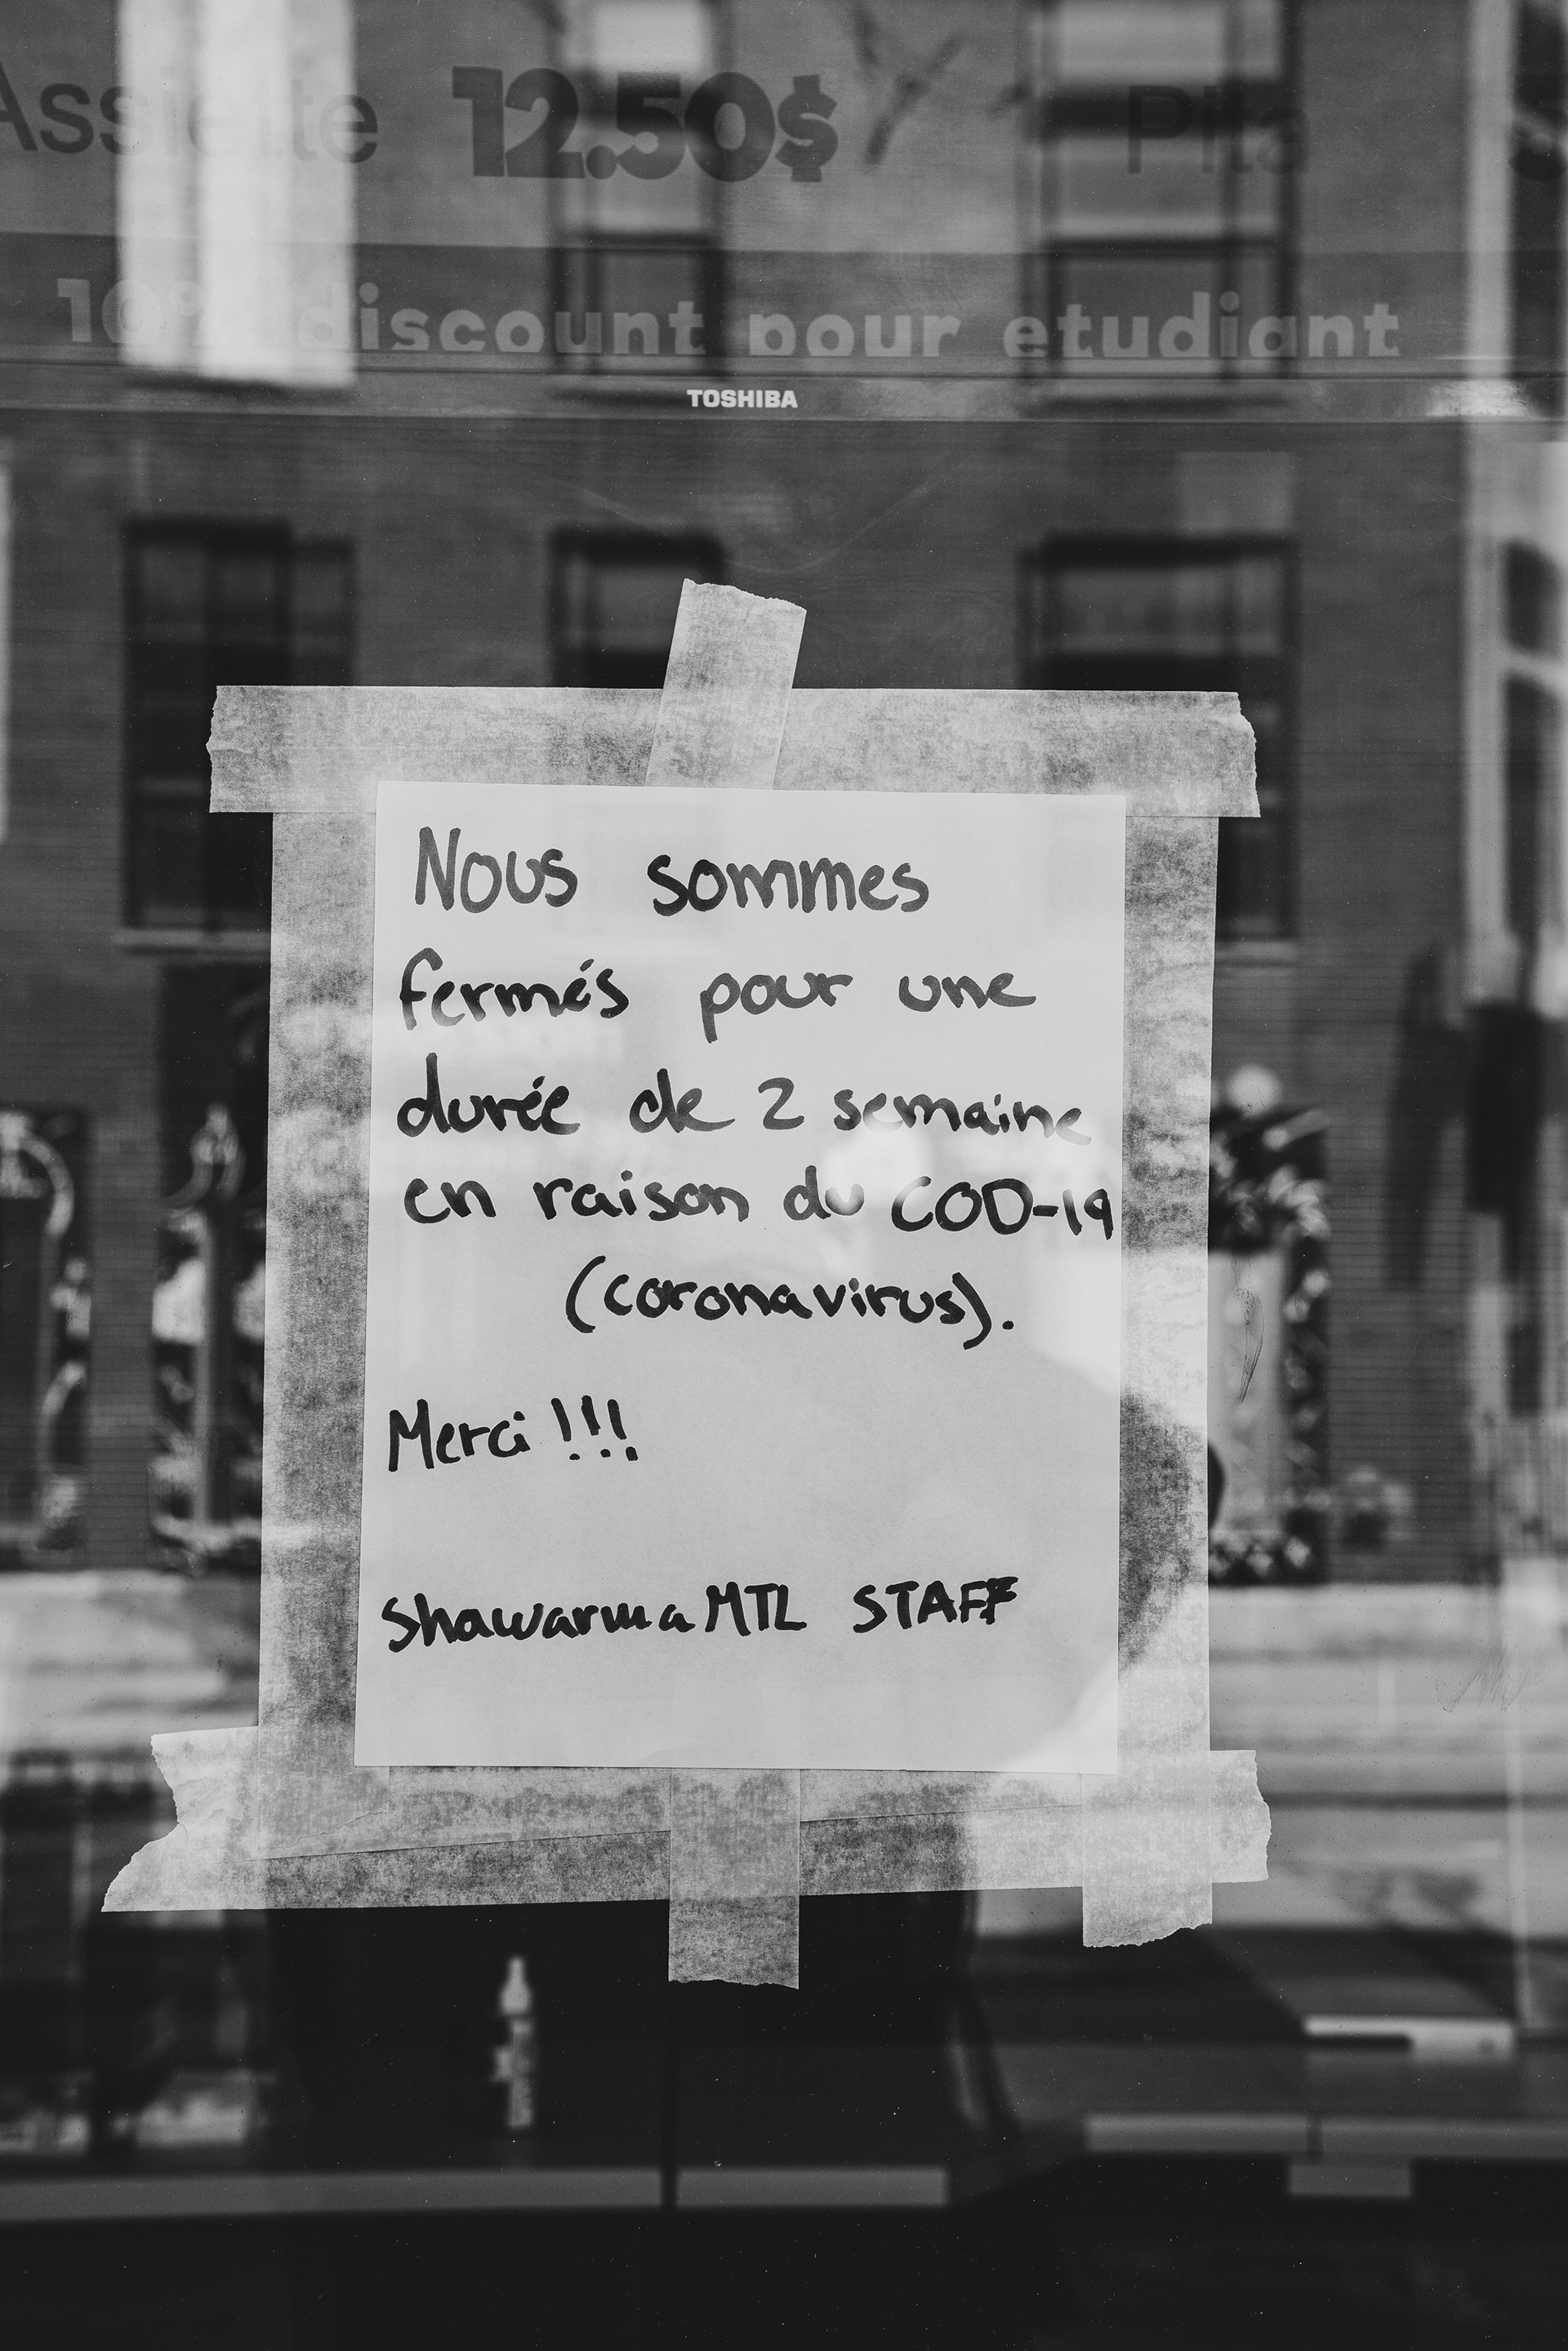 Assiette 12.50$ Pita
10% discount pour etudiant
TOSHIBA
Nous sommes
fermés pour une
durée de 2 semaine
en raison du COD-19
(coronavirus).
Merci !!!
Shawarma MTL STAFF